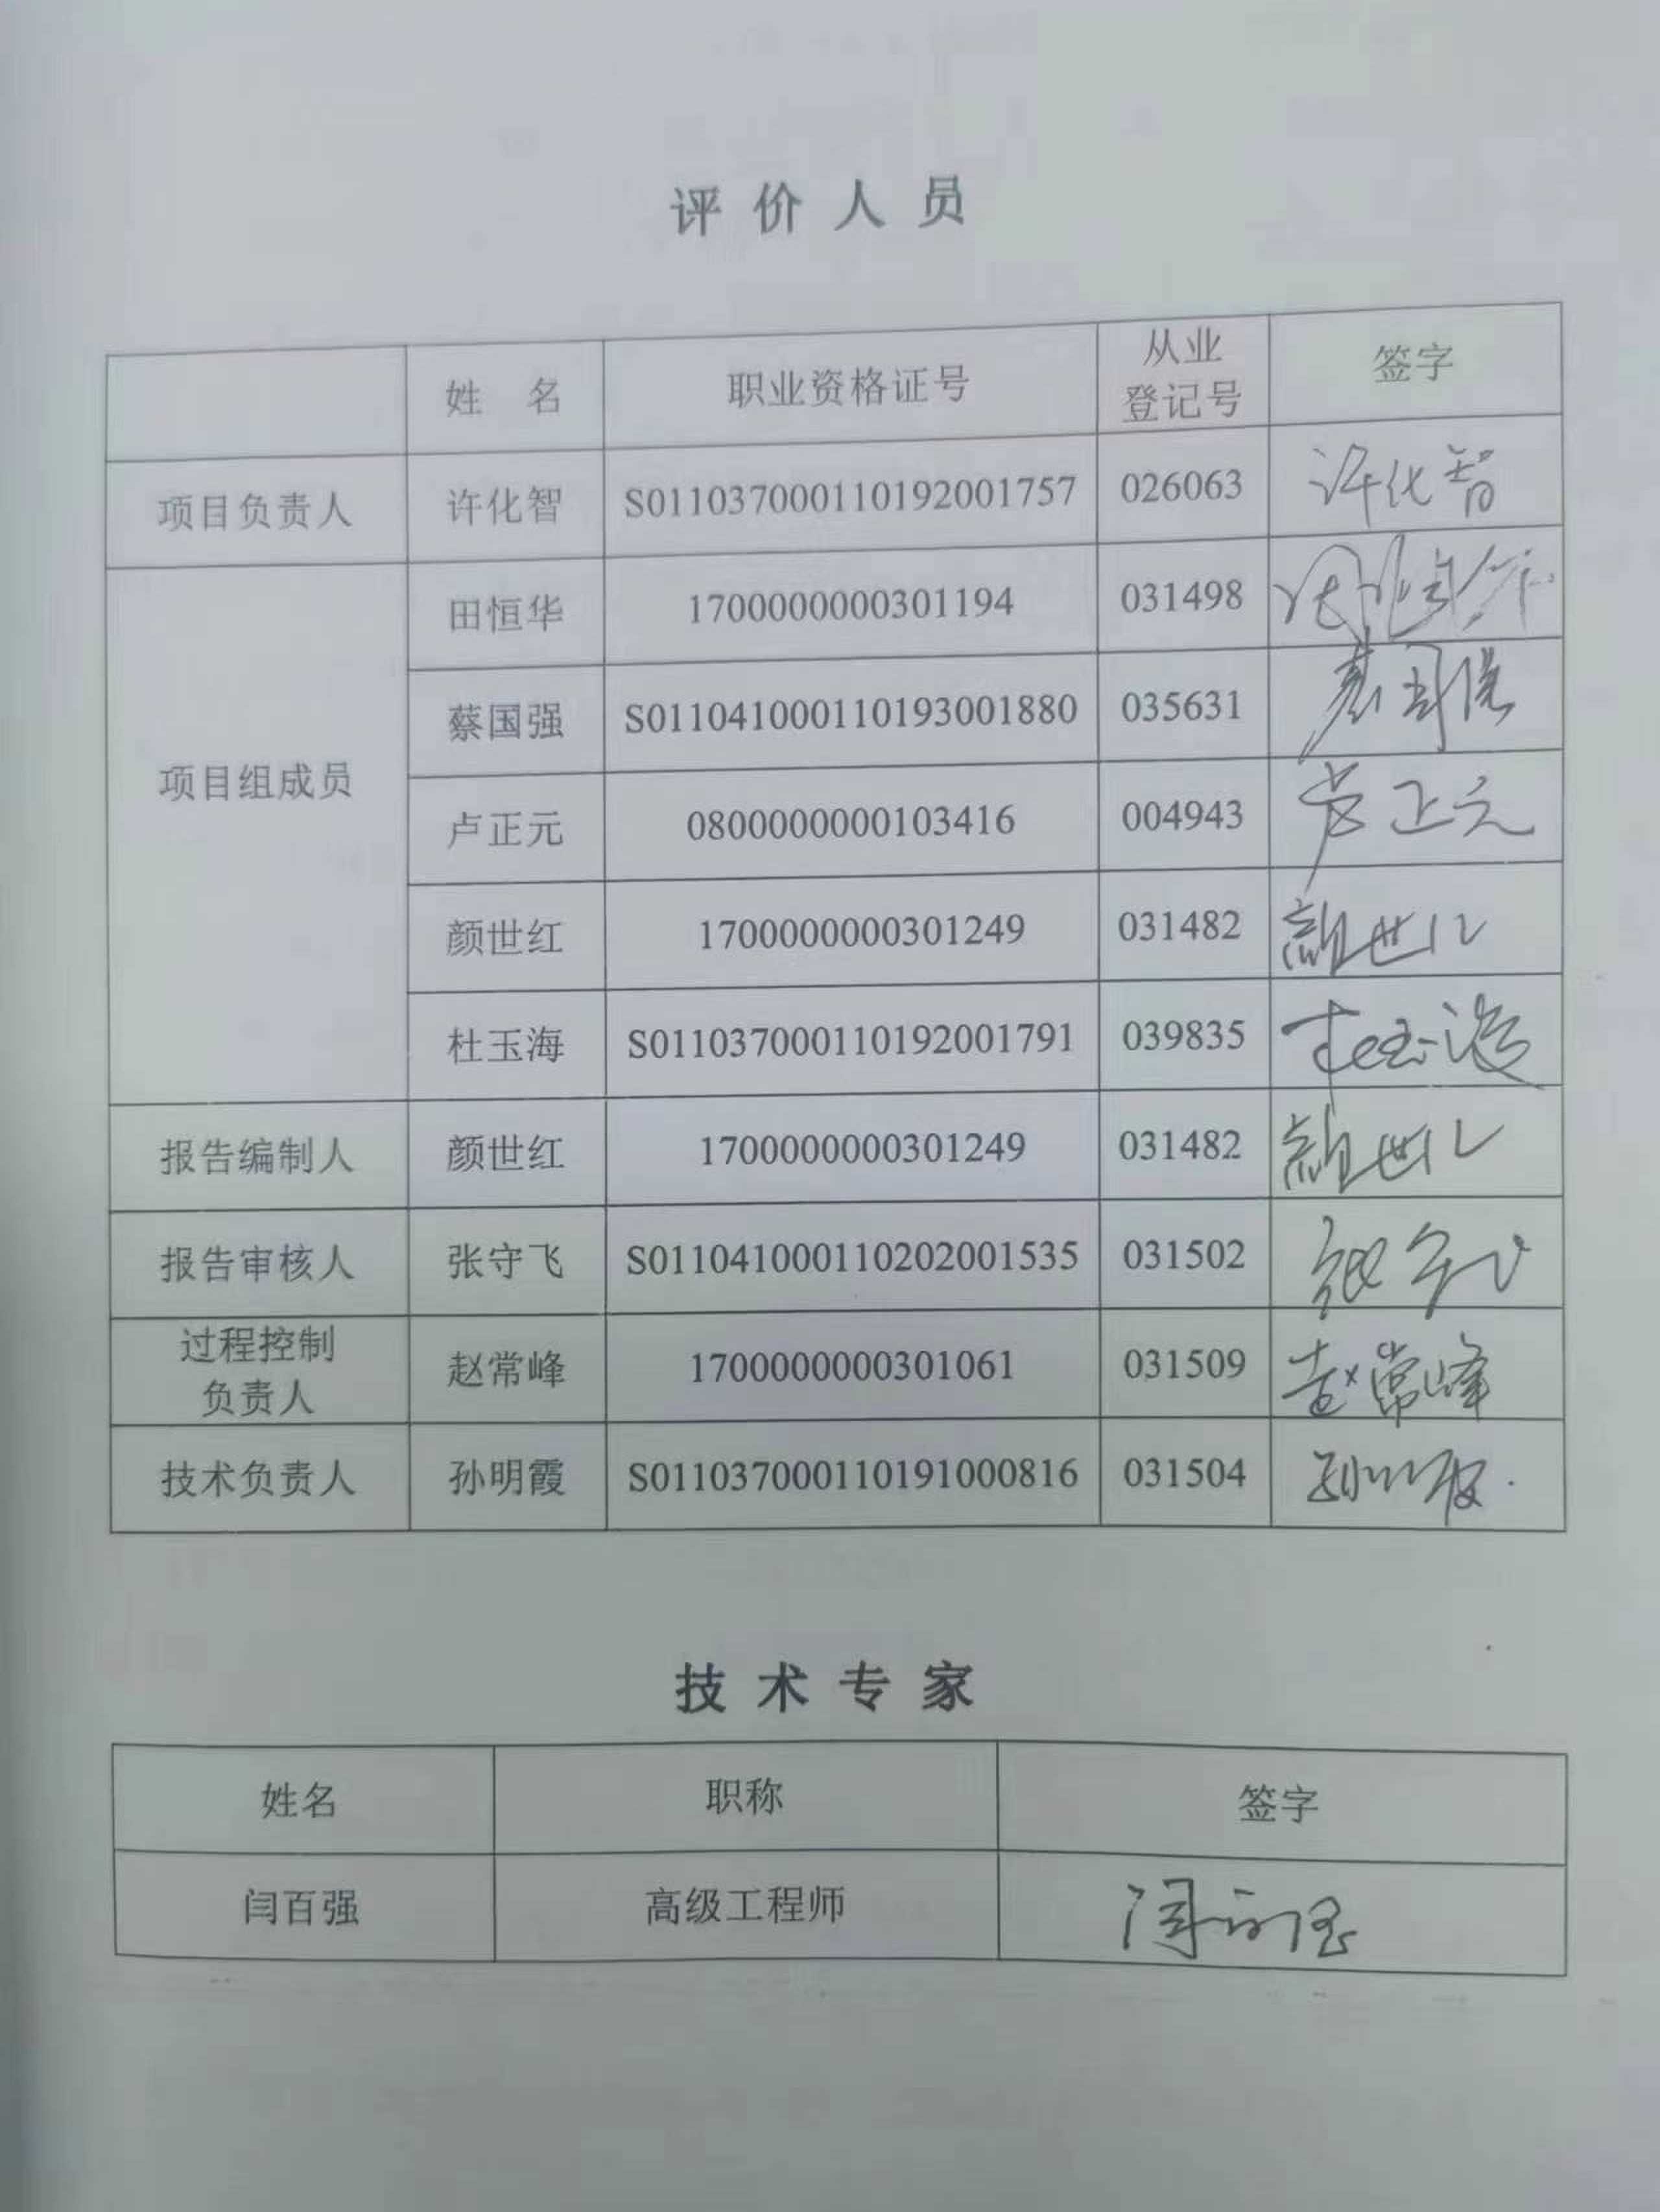 评价人员
姓 名 职业资格证号 从业登记号 签字
项目负责人 许化智 S011037000110192001757 026063 许化智
项目组成员 田恒华 1700000000301194 031498
蔡国强 S011041000110193001880 035631 蔡国强
卢正元 0800000000103416 004943 卢正元
颜世红 1700000000301249 031482 颜世红
杜玉海 S011037000110192001791 039835 杜玉海
报告编制人 颜世红 1700000000301249 031482 颜世红
报告审核人 张守飞 S011041000110202001535 031502 张守飞
过程控制负责人 赵常峰 1700000000301061 031509 赵常峰
技术负责人 孙明霞 S011037000110191000816 031504 孙明霞
技术专家
姓名 职称 签字
闫百强 高级工程师 闫百强